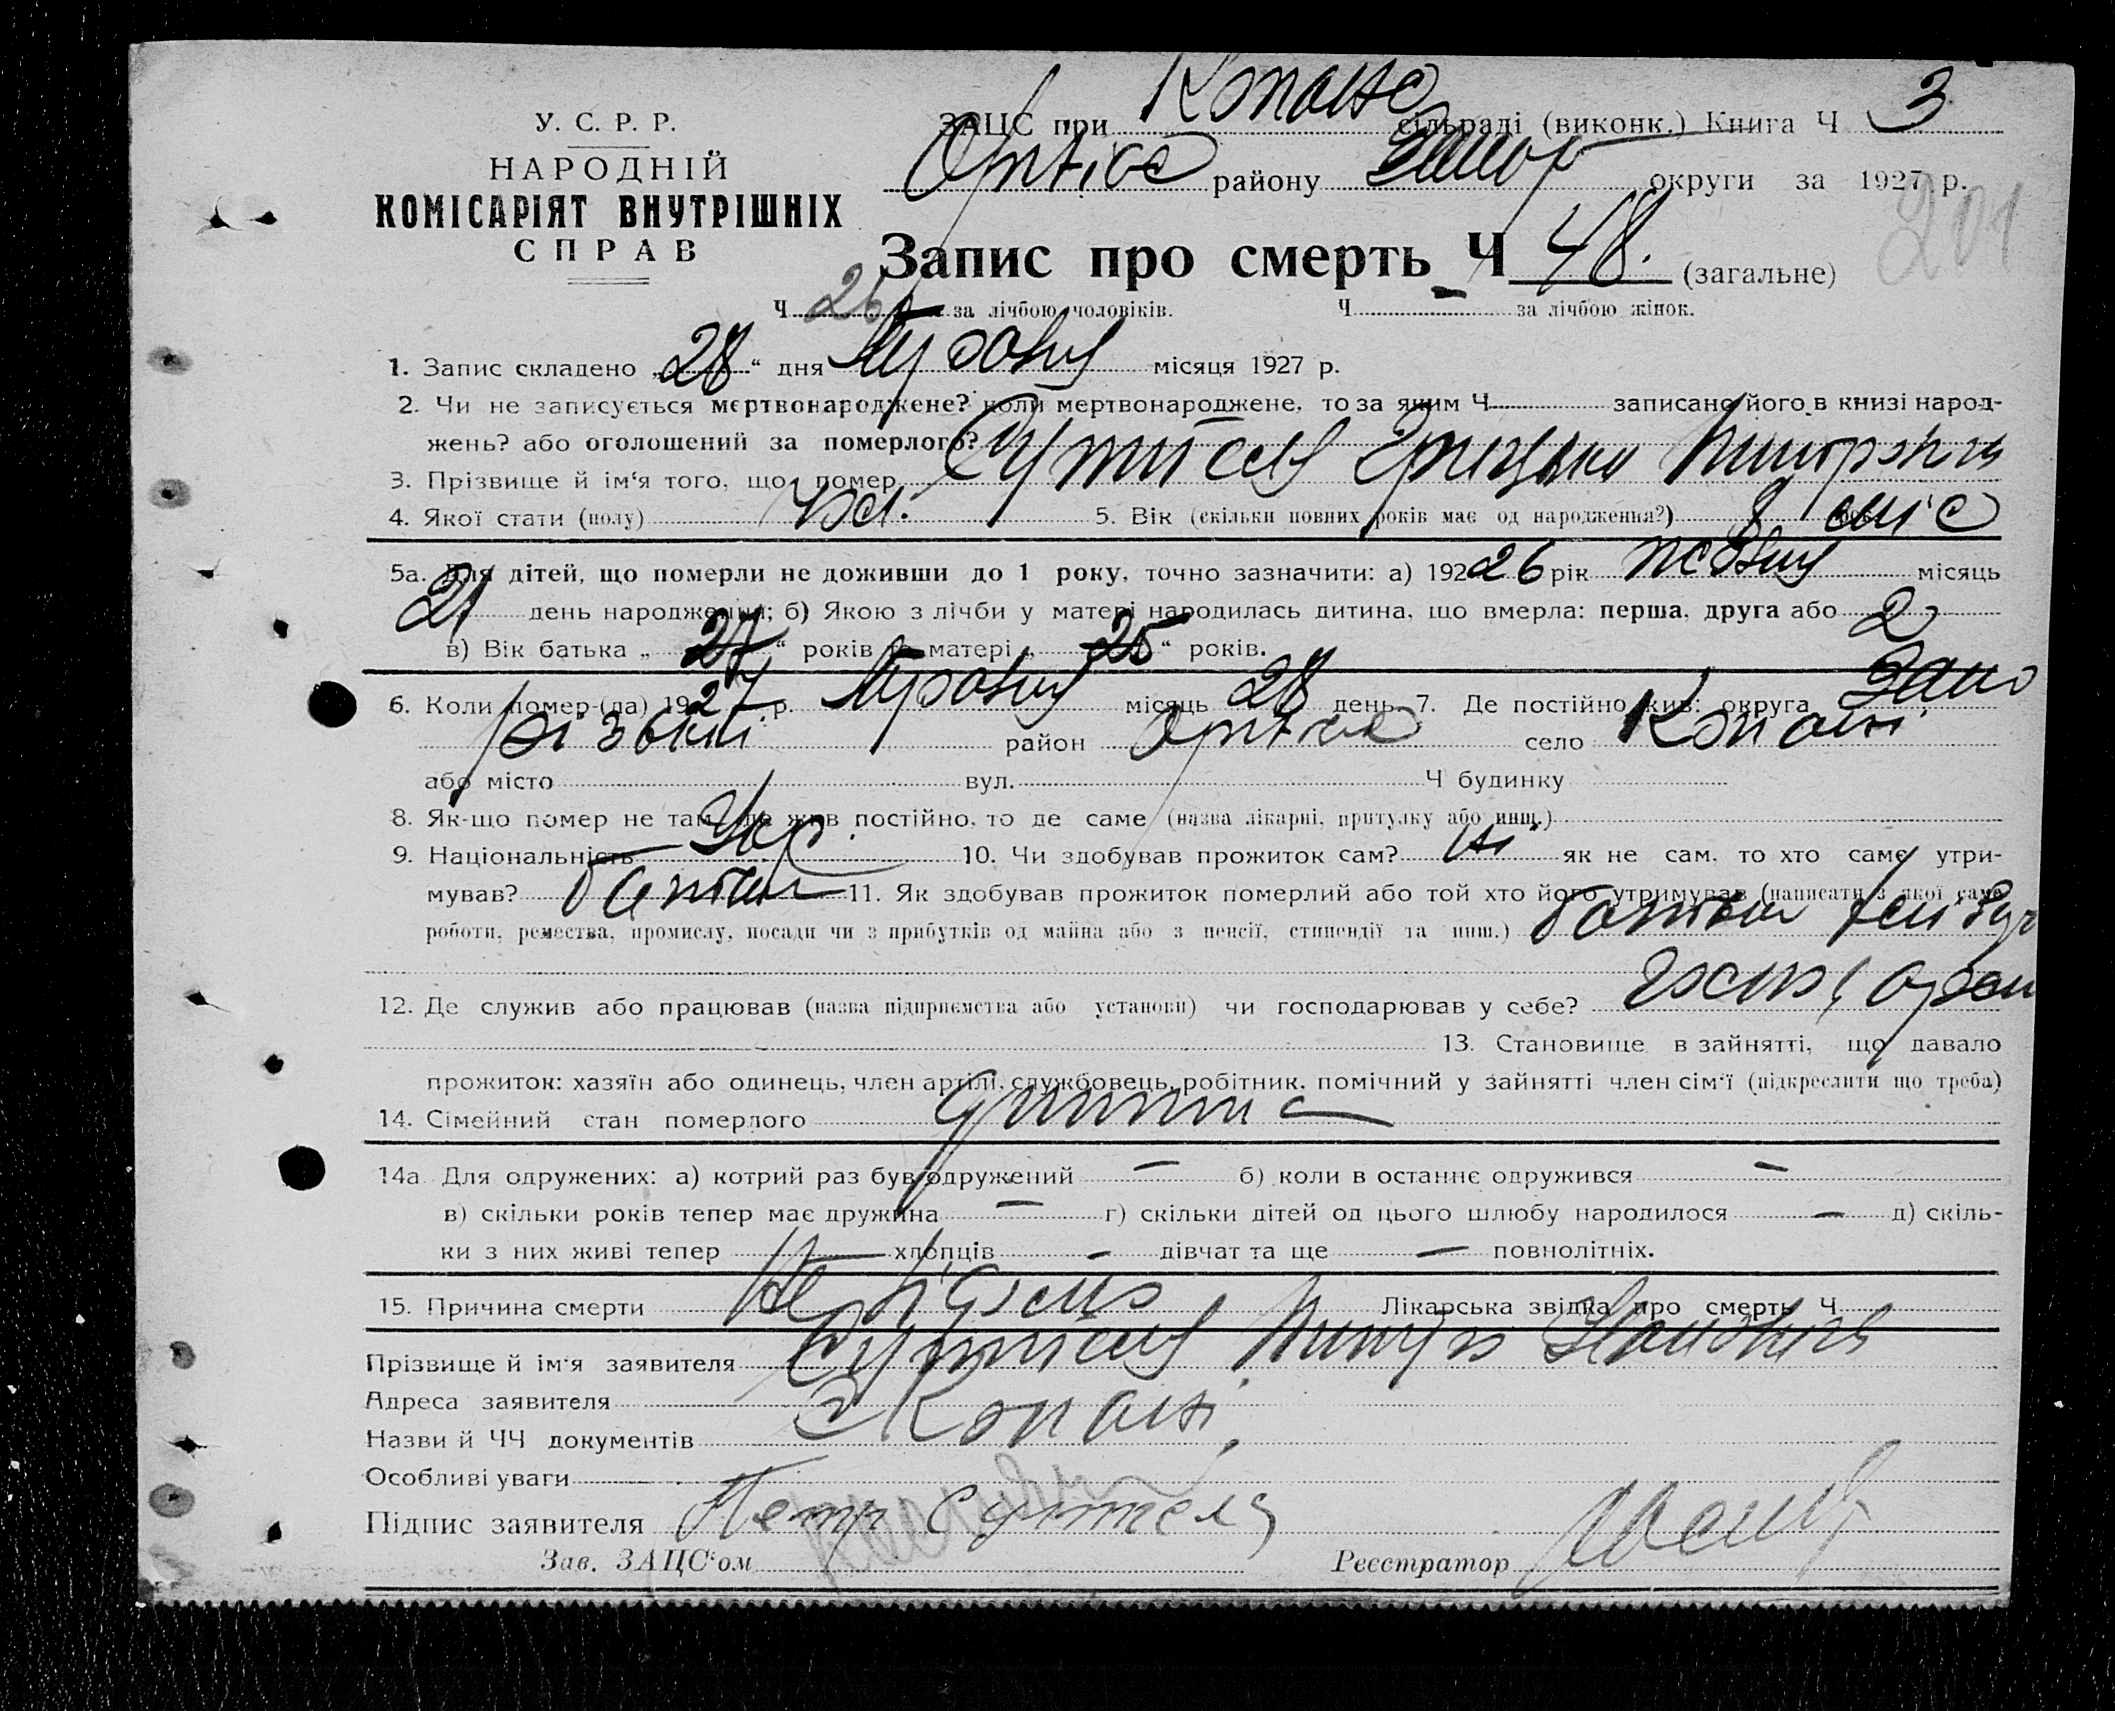 У. С. Р. Р.
НАРОДНІЙ
КОМІСАРІЯТ ВНУТРІШНІХ
СПРАВ
ЗАЦС при Копансь сільраді (виконк.) Книга Ч 3
Оріхів району Запор округи за 1927 р.
201
Запис про смерть Ч 48. (загальне)
Ч 26 за лічбою чоловіків. Ч — за лічбою жінок.
1. Запис складено „28“ дня Травня місяця 1927 р.
2. Чи не записується мертвонароджене? коли мертвонароджене, то за яким Ч записано його в книзі народ-
жень? або оголошений за померлого?
3. Прізвище й ім'я того, що помер Грицько
4. Якої стати (полу) чол. 5. Вік (скільки повних років має од народження?) 8 міс
5а. Для дітей, що померли не доживши до 1 року, точно зазначити: а) 192 26 рік жовтня місяць
21 день народження; б) Якою з лічби у матері народилась дитина, що вмерла: перша, друга або 2
в) Вік батька „27“ років й матері „25“ років.
6. Коли помер-(ла) 1927 р. Травня місяць 28 день. 7. Де постійно жив: округа Запо
різький район Оріхів село Копані
або місто вул. Ч будинку
8. Як-що помер не там, де жив постійно, то де саме (назва лікарні, притулку або инш.)
9. Національність Укр. 10. Чи здобував прожиток сам? ні як не сам, то хто саме утри-
мував? батьки 11. Як здобував прожиток померлий або той хто його утримував (написати з якої саме
роботи, ремества, промислу, посади чи з прибутків од майна або з пенсії, стипендії та инш.) батьки
12. Де служив або працював (назва підприємства або установи) чи господарював у себе?
13. Становище в зайнятті, що давало
прожиток: хазяїн або одинець, член артілі, службовець, робітник, помічний у зайнятті член сім'ї (підкреслити що треба)
14. Сімейний стан померлого дитина
14а Для одружених: а) котрий раз був одружений — б) коли в останнє одружився —
в) скільки років тепер має дружина — г) скільки дітей од цього шлюбу народилося — д) скіль-
ки з них живі тепер — хлопців - дівчат та ще — повнолітніх.
15. Причина смерти Не відомо Лікарська звідка про смерть Ч
Прізвище й ім'я заявителя
Адреса заявителя с Копані
Назви й ЧЧ документів
Особливі уваги
Підпис заявителя
Зав. ЗАЦС'ом Реєстратор